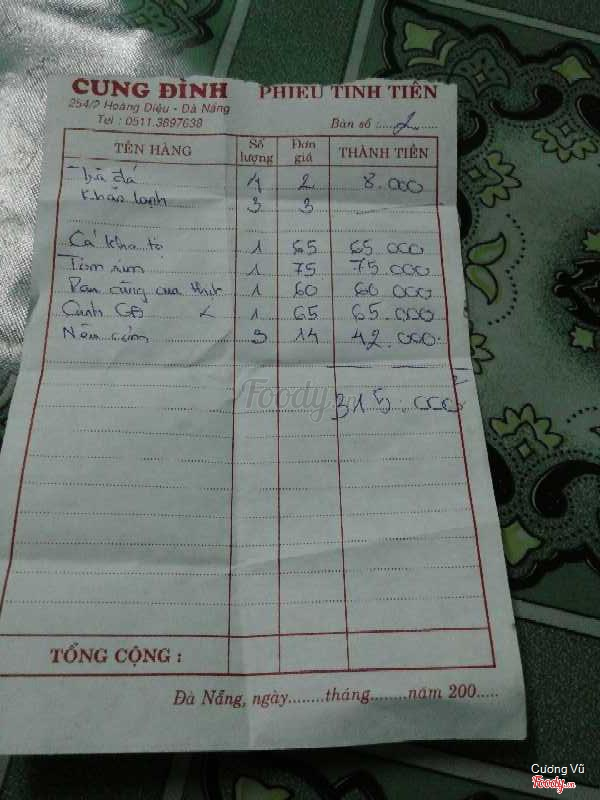 CUNG ĐÌNH PHIẾU TÍNH TIỀN
254/2 Hoàng Diệu - Đà Nẵng
Tel : 0511.3897638
Bàn số :
TÊN HÀNG Số lượng Đơn giá THÀNH TIỀN
Trà đá 4 2 8.000
Khăn lạnh 3 3
Cá kho tộ 1 65 65.000
Tôm rim 1 75 75.000
1 60 60.000
Canh 1 65 65.000
cơm 3 14 42.000
Foody.vn
315.000
TỔNG CỘNG :
Đà Nẵng, ngày........tháng........năm 200.....
Cương Vũ
Foody.vn